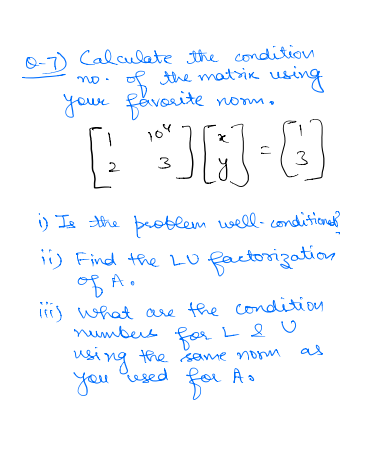 Q-7) Calculate the condition
no. of the matrix using
your favorite norm.
[1 10⁴; 2 3] [x; y] = [1; 3]
i) Is the problem well-conditioned?
ii) Find the LU factorization
of A.
iii) What are the condition
numbers for L & U
using the same norm as
you used for A.